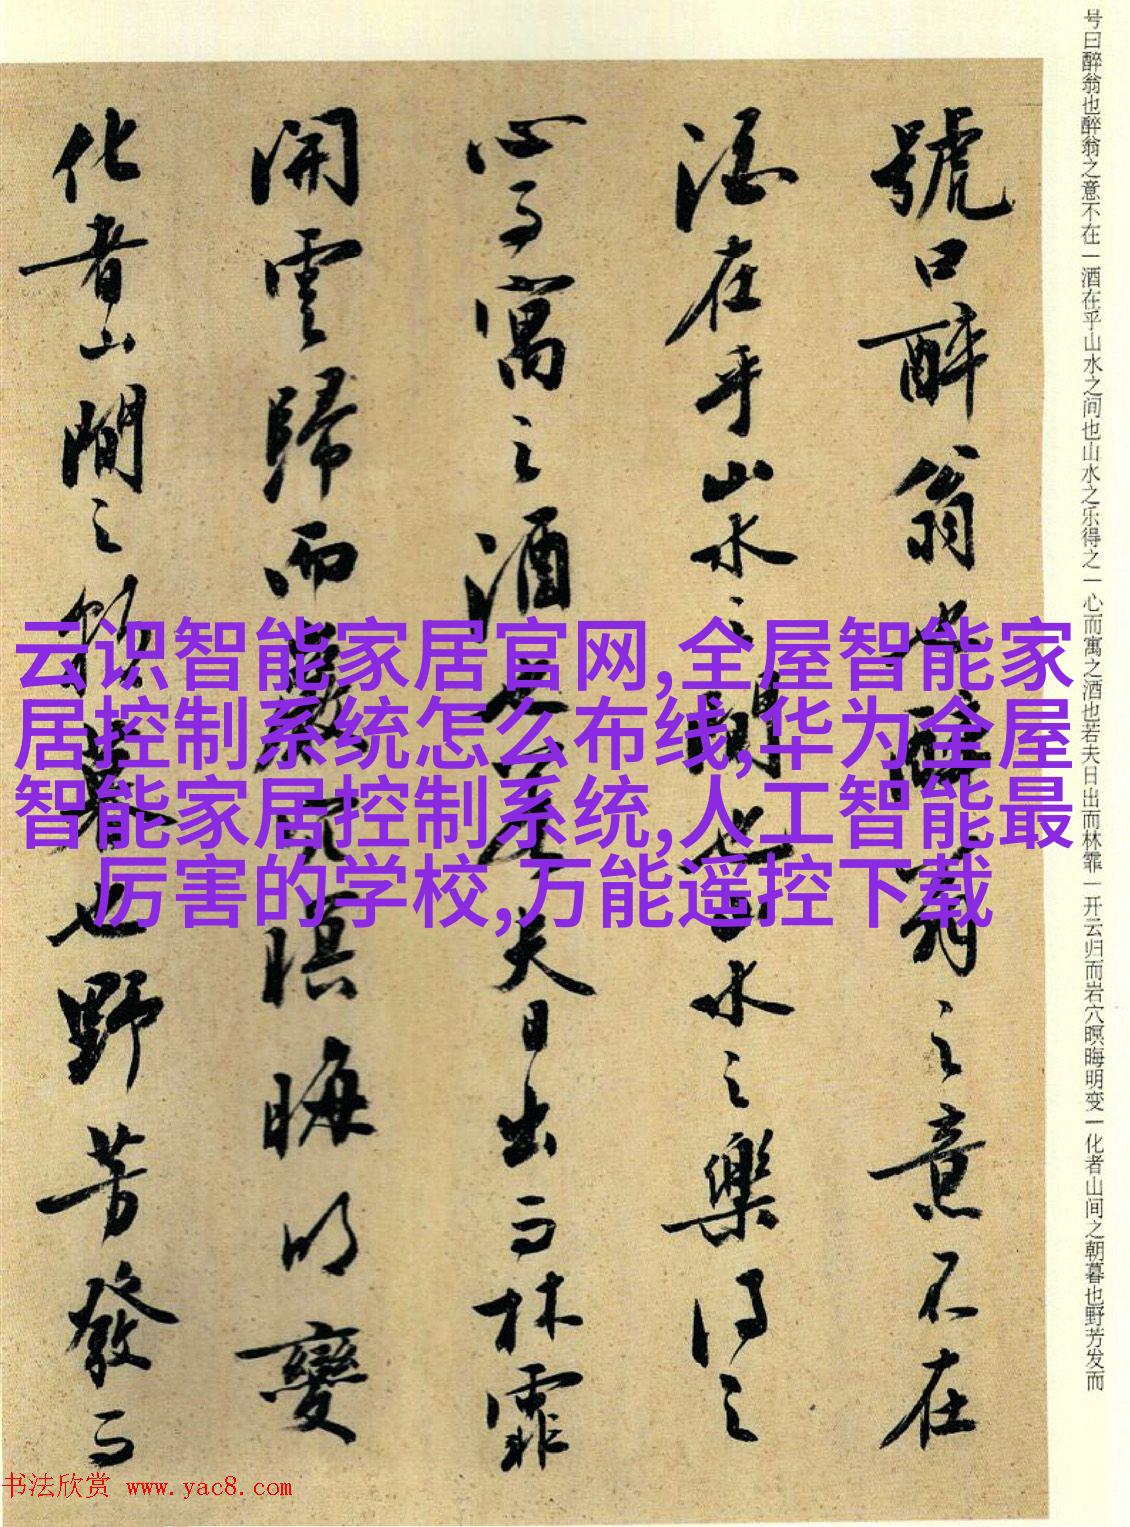 号曰醉翁也醉翁之意不在一酒在乎山水之间也山水之乐得之一心而寓之酒也若夫日出而林霏一开云归而岩穴暝晦明变一化者山间之朝暮也野芳发而
號曰醉翁也醉翁之意不在
酒在乎山水之間也山水之樂得之
心而寓之酒也若夫日出而林霏
開雲歸而巖穴暝晦明變
化者山間之朝暮也野芳發而
云识智能家居官网,全屋智能家
居控制系统怎么布线,华为全屋
智能家居控制系统,人工智能最
厉害的学校,万能遥控下载
书法欣赏 www.yac8.com